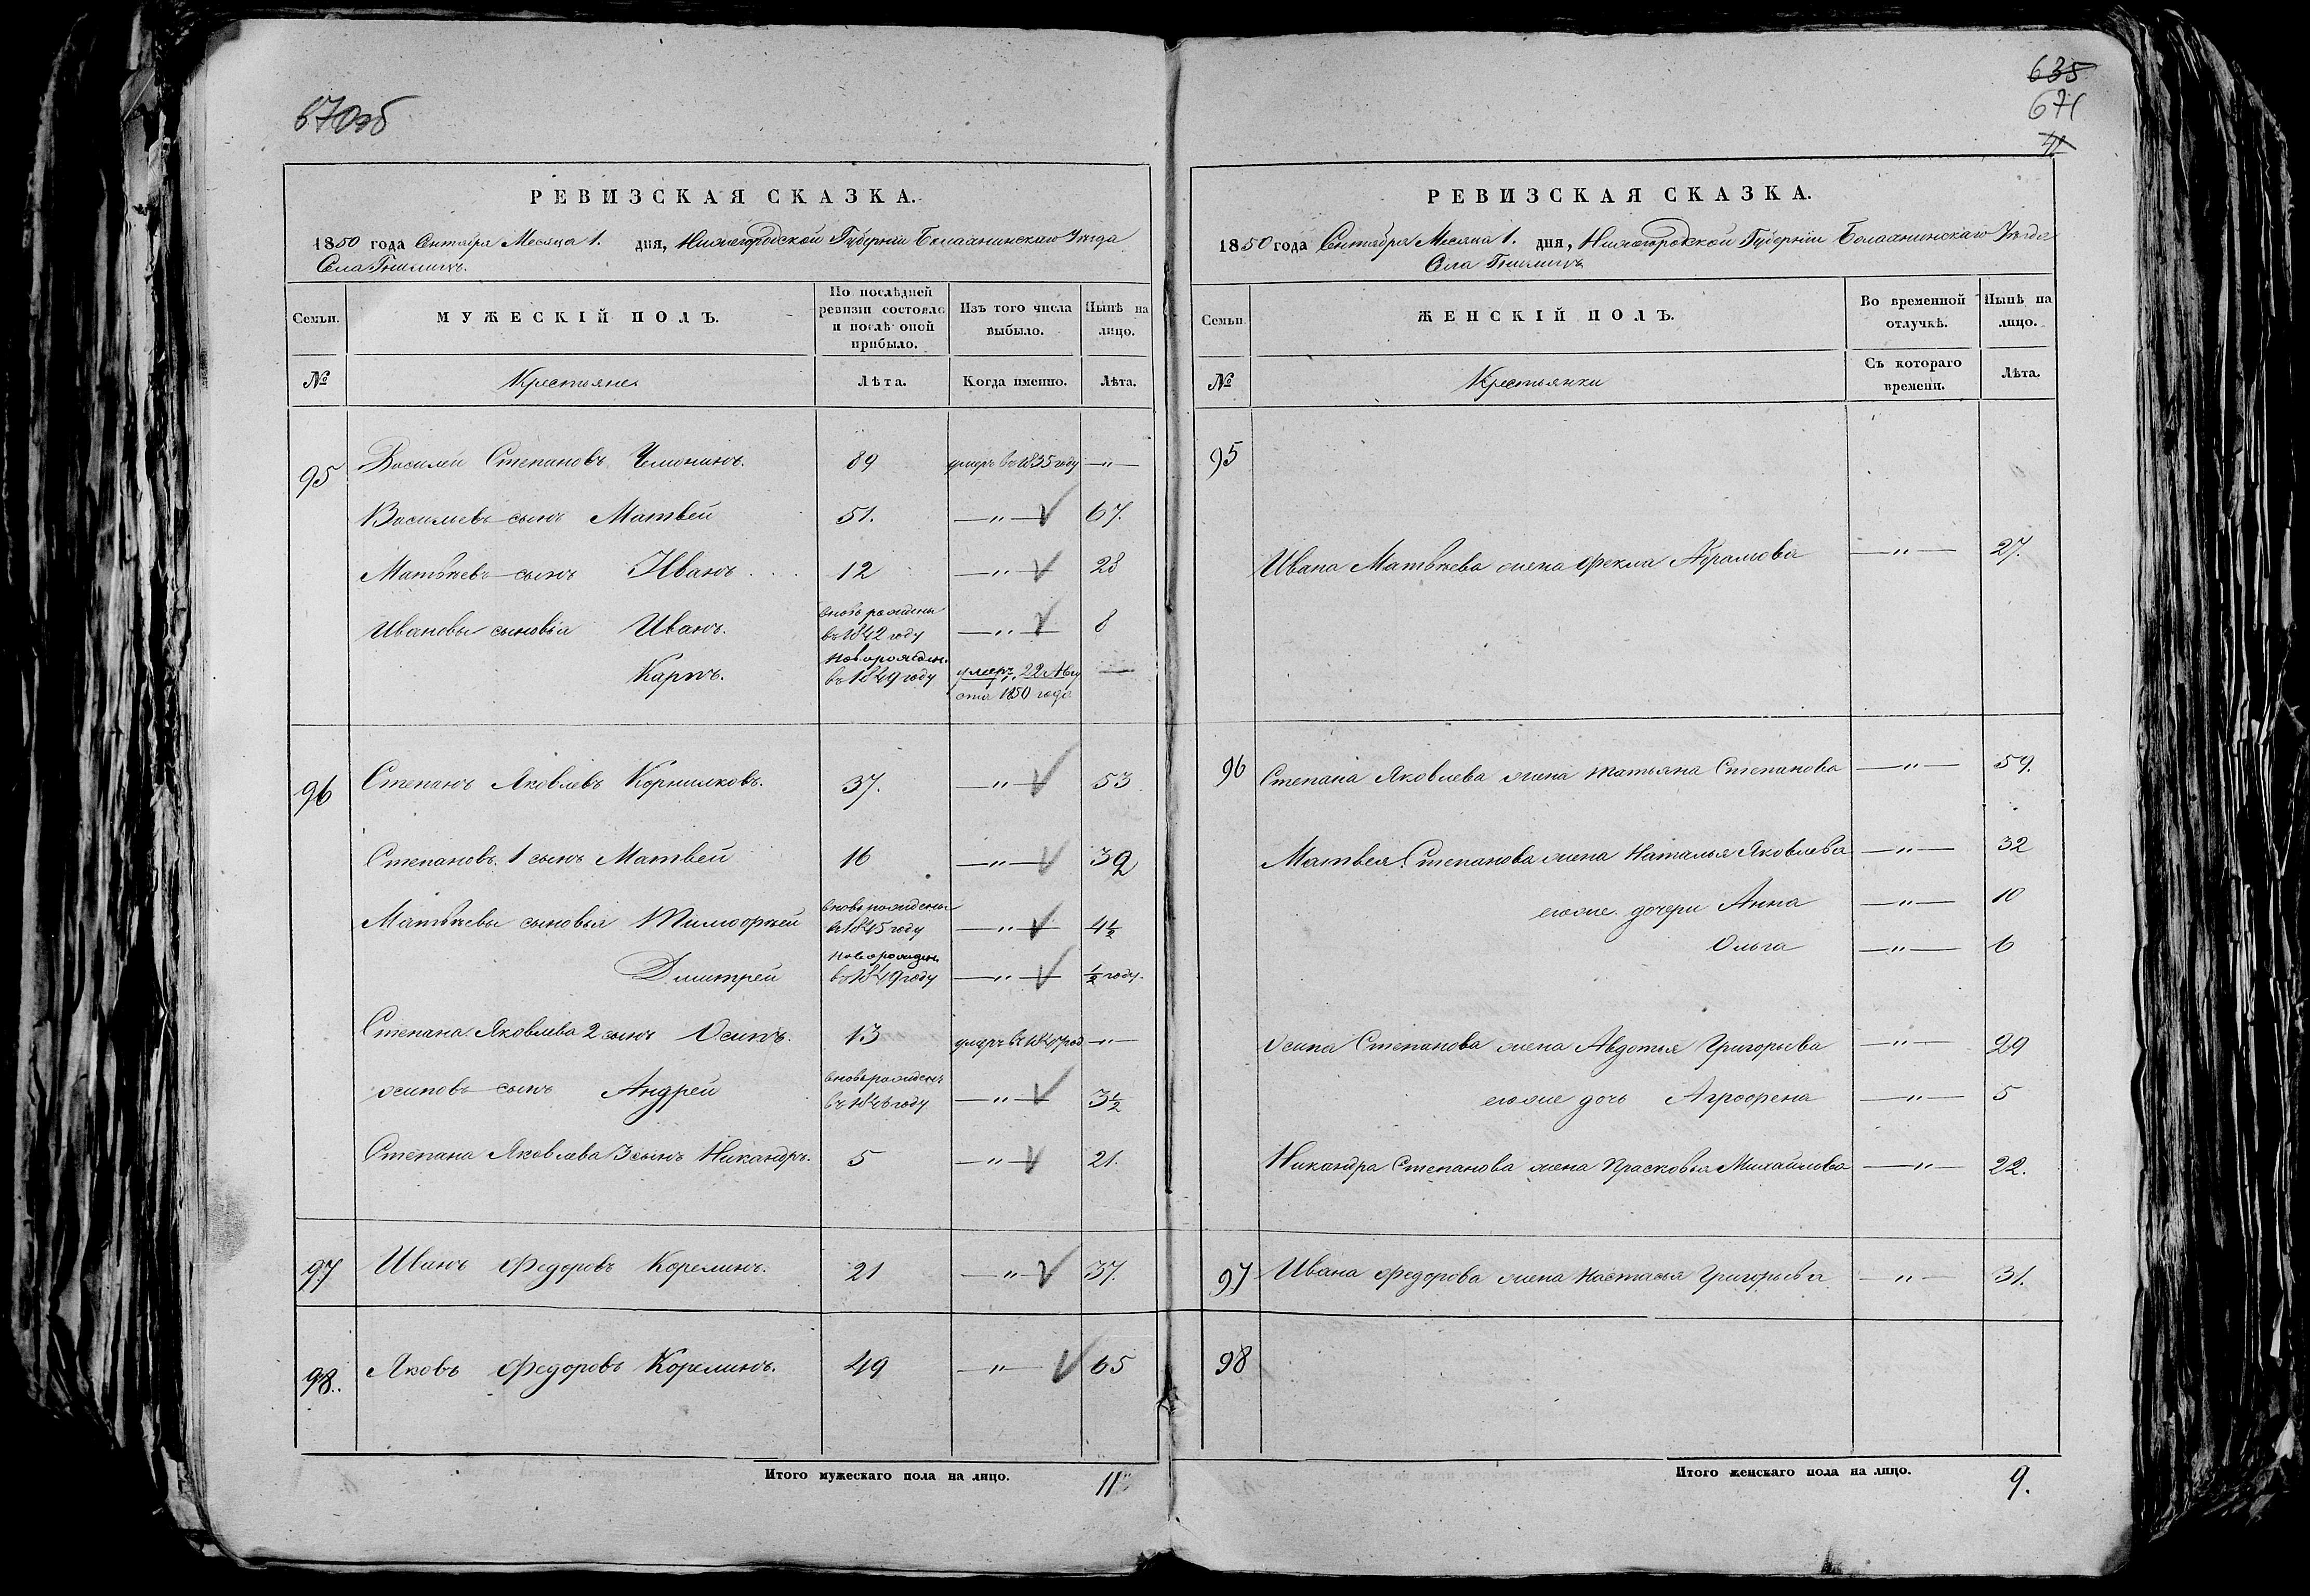 670об
РЕВИЗСКАЯ СКАЗКА.
1850 года Сентября Месяца 1. дня, Нижегородской Губерніи Балахнинскаго Уѣзда
Села
Семьи.
МУЖЕСКІЙ ПОЛЪ.
По послѣдней ревизіи состояло и послѣ оной прибыло.
Изъ того числа выбыло.
Нынѣ на лицо.
№ Крестьяне Лѣта. Когда именно. Лѣта.
95 Василей Степановъ 89 умеръ въ 1835 году —"—
Васильевъ сынъ Матвей 51. —"— 67.
Матвѣевъ сынъ Иванъ 12 —"— 28
Ивановы сыновья Иванъ. вновь рожденъ въ 1842 году —"— 8
Карпъ. новорожден. въ 1849 году умеръ 22 Авгу ста 1850 года —
96 Степанъ Яковлевъ Корниловъ. 37. —"— 53
Степановъ 1 сынъ Матвей 16 —"— 32
Матвѣевы сыновья Тимофѣей вновь рожденъ въ 1845 году —"— 4½
Дмитрей новорожден въ 1849 году —"— ½ году.
Степана Яковлева 2 сынъ Осипъ. 13 умеръ въ 1847 год —"—
осиповъ сынъ Андрей вновь рожденъ въ 1846 году —"— 3½
Степана Яковлева 3 сынъ Никандръ. 5 —"— 21.
97 Иванъ Федоровъ Корелинъ. 21 —"— 37.
98. Яковъ Федоровъ Корелинъ. 49 —"— 65
Итого мужескаго пола на лицо. 11
635
671
41
РЕВИЗСКАЯ СКАЗКА.
1850 года Сентября Месяца 1. дня, Нижегородской Губерніи Балахнинскаго Уѣзда
Села
Семьи
ЖЕНСКІЙ ПОЛЪ.
Во временной отлучкѣ.
Нынѣ на лицо.
№ Крестьянки Съ котораго времени. Лѣта.
95
Ивана Матвѣева жена Фекла Абрамова —"— 27.
96 Степана Яковлева жена татьяна Степанова —"— 54.
Матвея Степанова жена Наталья Яковлева —"— 32
егоже дочери Анна —"— 10
Ольга —"— 6
Осипа Степанова жена Авдотья Григорьева —"— 29
егоже дочь Агрофена —"— 5
Никандра Степанова жена Прасковья Михайлова —"— 22.
97 Ивана Федорова жена Настасья Григорьева —"— 31.
98
Итого женскаго пола на лицо. 9.